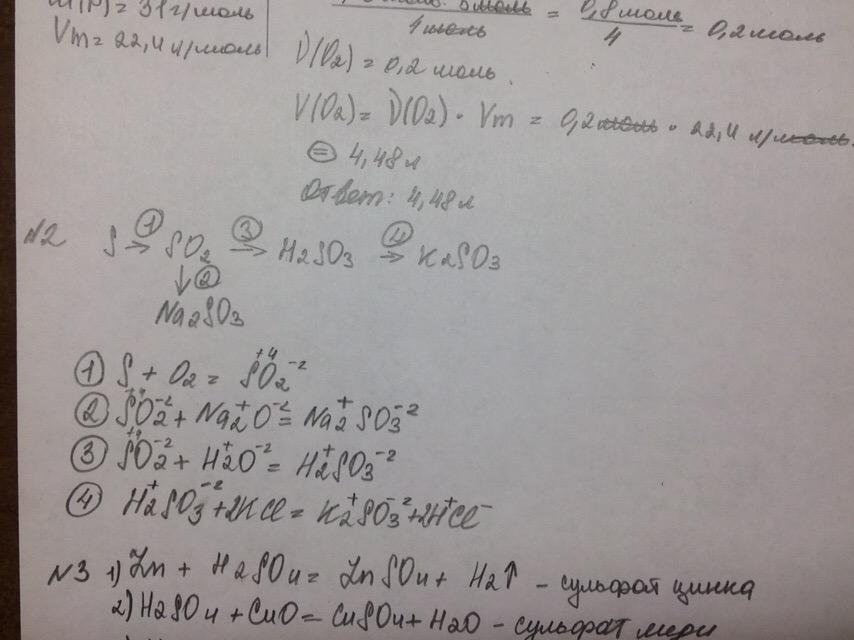 M(P) = 31 г/моль
Vm = 22,4 л/моль
4 моль
= 0,8 моль / 4 = 0,2 моль
ν(O2) = 0,2 моль.
V(O2) = ν(O2) · Vm = 0,2 моль · 22,4 л/моль
= 4,48 л
Ответ: 4,48 л
N2 S →① SO2 →③ H2SO3 →④ K2SO3
↓②
Na2SO3
① S + O2 = S⁺⁴O2⁻²
② S⁺⁴O2⁻² + Na2⁺O⁻² = Na2⁺SO3⁻²
③ S⁺⁴O2⁻² + H2⁺O⁻² = H2⁺SO3⁻²
④ H2⁺SO3⁻² + 2KCl = K2⁺SO3⁻² + 2H⁺Cl⁻
N3 1) Zn + H2SO4 = ZnSO4 + H2↑ – сульфат цинка
2) H2SO4 + CuO = CuSO4 + H2O – сульфат меди